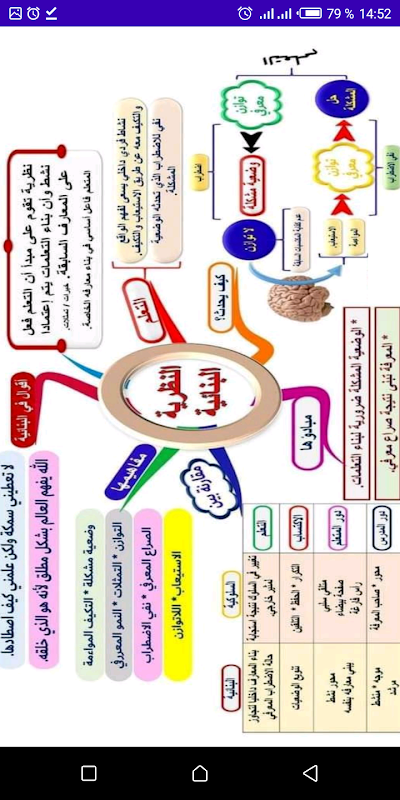 79 % 14:52
النظرية
البنائية
نظرية تقوم على مبدأ ان التعلم فعل
نشط وان بناء التعلمات يتم إعتمادا
على المعارف السابقة. خبرات / تمثلات.
المتعلم فاعل اساسي في بناء معارفه الخاصة.
التعلم
نشاط فردي داخلي يسمى لفهم الواقع
والتكيف معه عن طريق الاستيعاب والتكيف.
نفي للاضطراب الذي تحدثه الوضعية
المشكلة.
كيف يحدث؟
التعلم
توازن
معرفي
وضعية مشكلة
لا توازن
اضطراب
عدم كفاية المكتسبات السابقة
المواءمة
الاستيعاب
توازن
معرفي
حل
المشكلة
نفي للاضطراب
مبادؤها
* المعرفة تبنى نتيجة صراع معرفي.
* الوضعية المشكلة ضرورية لبناء التعلمات.
مقارنة بين
التعلم
الاكتساب
دور المتعلم
دور المدرس
السلوكية
تغيير في السلوك نتيجة استجابة
لمثير خارجي
التكرار * الحفظ * التلقين
متلقي سلبي
صفحة بيضاء
رأس فارغة
محور * صاحب المعرفة
البنائية
بناء المعارف داخليا لتجاوز
حالة الاضطراب المعرفي
تنويع الوضعيات
محور نشط
يبني معارفه بنفسه
موجه * منشط
مرشد
مفاهيمها
وضعية مشكلة * التكيف المواءمة
التوازن * التمثلات * النمو المعرفي
الصراع المعرفي * نفي الاضطراب
الاستيعاب * اللاتوازن
اقوال في البنائية
الله يفهم العالم بشكل مطلق لأنه هو الذي خلقه.
لا تعطيني سمكة ولكن علمني كيف اصطادها.